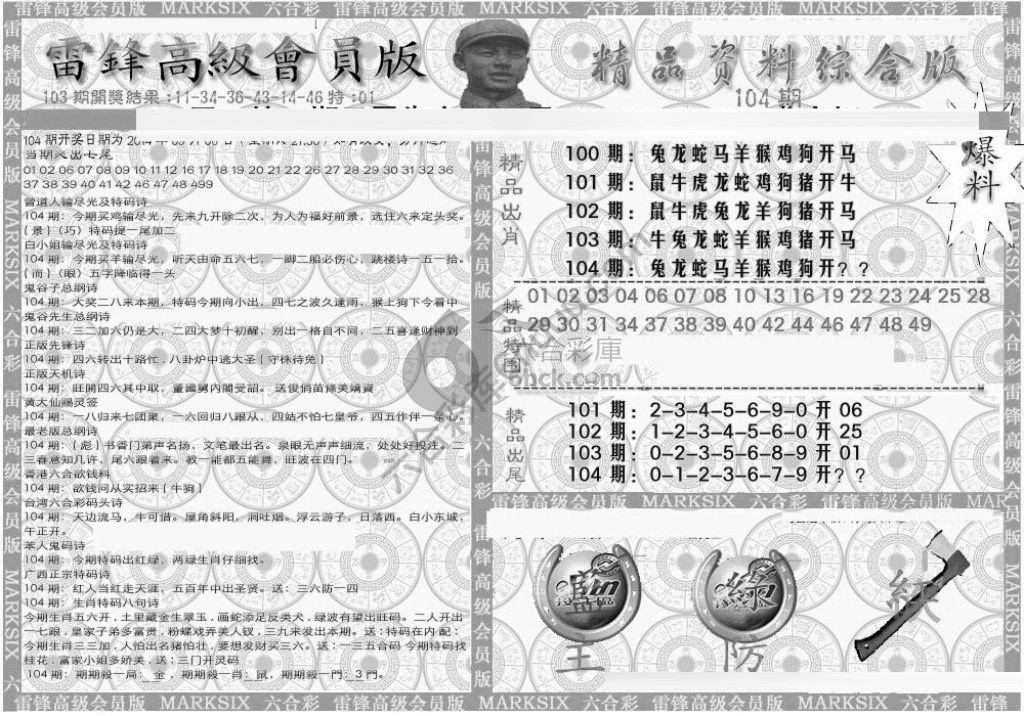 雷锋高级会员版 MARKSIX 六合彩 雷锋高级会员版 MARKSIX 六合彩 雷锋高级会员版 MARKSIX 六合彩 雷锋
雷鋒高級會員版
精品資料綜合版
103 期開獎結果:11-34-36-43-14-46 特:01
104 期
爆料
104 期开奖日期为
01 02 06 07 08 09 10 11 12 16 17 18 19 20 21 22 26 27 28 29 30 31 32 36
37 38 39 40 41 42 46 47 48 499
曾道人输尽光及特码诗
104 期: 今期买鸡输尽光, 先来九开除二次, 为人为福好前景, 选住六来定头奖。
{景}(巧) 特码提一尾加二
白小姐输尽光及特码诗
104 期: 今期买羊输尽光, 听天由命五六七, 一脚二船必伤心, 跳楼诗一五一拾。
{而}(眼) 五字降临得一头
鬼谷子总纲诗
104 期: 大奖二八来本期, 特码今期向小出, 四七之波久逢雨, 猴上狗下今看中
鬼谷先生总纲诗
104 期: 三二加六仍是大, 二四大梦十初醒, 别出一格自不同, 二五喜逢财神到
正版先锋诗
104 期: 四六转出十路忙, 八卦炉中逃大圣{守株待兔}
正版天机诗
104 期: 旺開四六其中取, 董國舅内閣受詔。送俊俏苗條美嬌資
黄大仙赐灵签
104 期: 一八归来七团聚, 一六回归八跟从, 四姑不怕七皇爷, 四五作伴一条心。
最老版总纲诗
104 期: {彪}书香门第声名扬, 文笔最出名。泉眼无声声细流, 处处好投注。二
三春意知几许, 尾六跟着来。教一能都五能舞, 旺波在四门。
香港六合欲钱料
104 期: 欲钱问从实招来{牛狗}
台湾六合彩码头诗
104 期: 天边流马, 牛可借。屋角斜阳, 涧吐烟。浮云游子, 日落西。白小东城,
午正开。
本人鬼码诗
104 期: 今期特码出红绿, 两绿生肖仔细找。
广西正宗特码诗
104 期: 红人当红走天涯, 五百年中出圣贤。送: 三六防一四
104 期: 生肖特码八句诗
今期生肖五六开, 土里藏金生翠玉, 画蛇添足反类犬, 绿波有望出旺码。二人开出
一七跟, 皇家子弟多富贵, 粉蝶戏弄美人钗, 三九来发出本期。送: 特码在内·配:
今期生肖三三加, 人怕出名猪怕壮, 要想发财买三六。送: 一三五合码 今期特码找
桂花, 富家小姐多娇美, 送: 三门开灵码
104 期: 期期殺一局: 金, 期期殺一肖: 鼠, 期期殺一門: 3 門。
精品出肖
100 期: 兔龙蛇马羊猴鸡狗开马
101 期: 鼠牛虎龙蛇鸡狗猪开牛
102 期: 鼠牛虎兔龙羊狗猪开马
103 期: 牛兔龙蛇羊猴鸡猪开马
104 期: 兔龙蛇马羊猴鸡狗开? ?
精品特围
01 02 03 04 06 07 08 10 13 16 19 22 23 24 25 28
29 30 31 34 37 38 39 40 42 44 46 47 48 49
六合彩库
6hck.com
精品出尾
101 期: 2-3-4-5-6-9-0 开 06
102 期: 1-2-3-4-5-6-0 开 25
103 期: 0-2-3-5-6-8-9 开 01
104 期: 0-1-2-3-6-7-9 开? ?
雷锋高级会员版 MARKSIX 六合彩 雷锋高级会员版 MARKSIX
藍
綠
红
主
防
雷锋高级会员版 MARKSIX 六合彩 雷锋高级会员版 MARKSIX 六合彩 雷锋高级会员版 MARKSIX 六合彩 雷锋